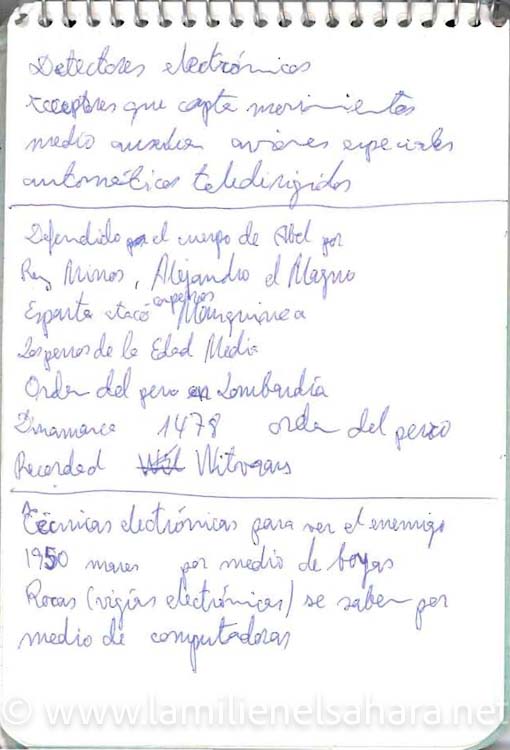 Detectores electrónicos
receptores que capta movimientos
medio auxiliar aviones especiales
automáticos teledirigidos
Defendido el cuerpo de Abel por
Rey Minos, Alejandro el Magno
Esparta atacó con perros
Los perros de la Edad Media
Orden del perro en Lombardía
Dinamarca 1478 orden del perro
Recorded
Técnicas electrónicas para ver el enemigo
1950 mares por medio de boyas
Rocas (vigías electrónicas) se saben por
medio de computadoras
© www.lamilienelsahara.net